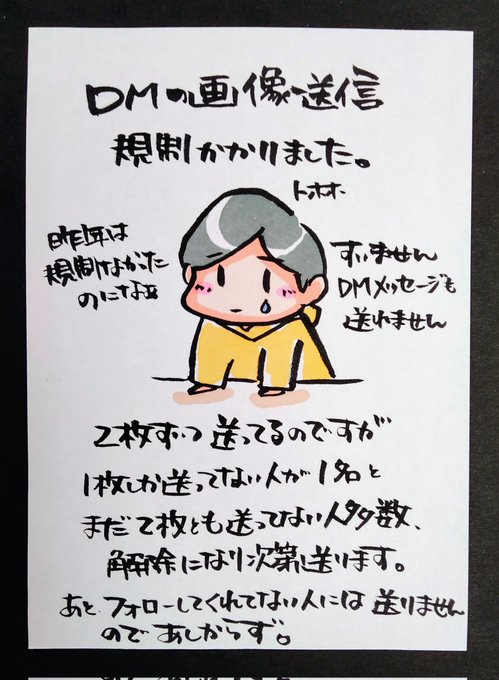 DMの画像送信
規制かかりました。
トホホ
昨年は
規制なかった
のになぁ
すいません
DMメッセージも
送れません
2枚ずつ送ってるのですが
1枚しか送ってない人が1名と
まだ2枚とも送ってない人多数、
解除になり次第送ります。
あと、フォローしてくれてない人には送りません
のであしからず。